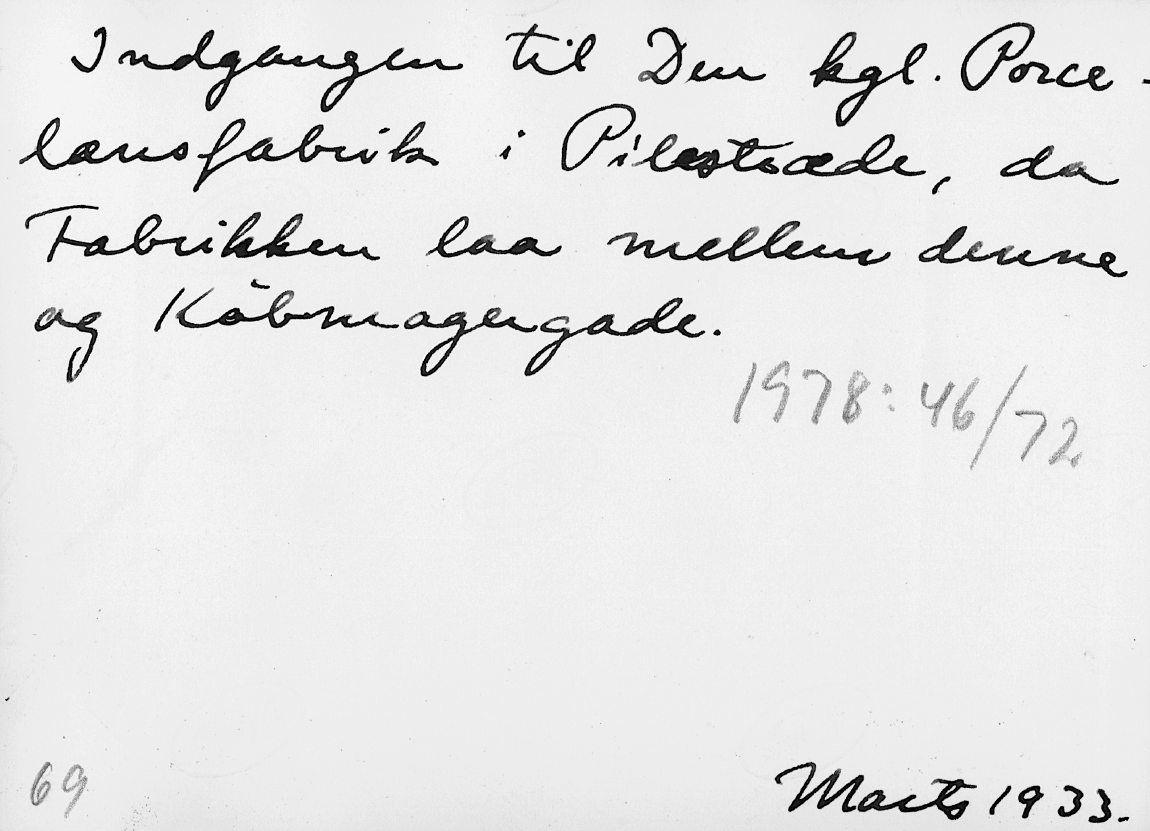 Indgangen til Den kgl. Porce-
lænsfabrik i Pilestræde, da
Fabrikken laa mellem denne
og Köbmagergade.
1978:46/72
69
Marts 1933.